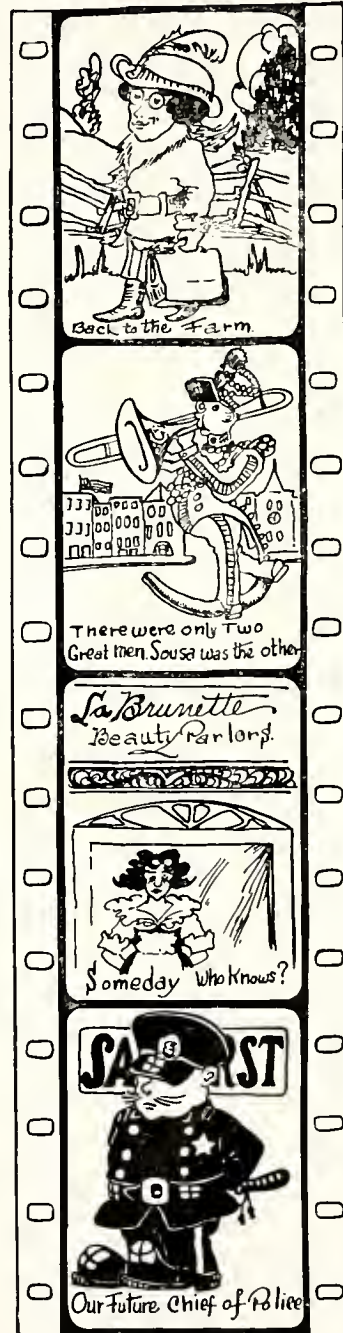 Back to the Farm.
There were only Two
Great men. Sousa was the other
La Brunette
Beauty Parlors.
Someday Who Knows?
Our Future Chief of Police